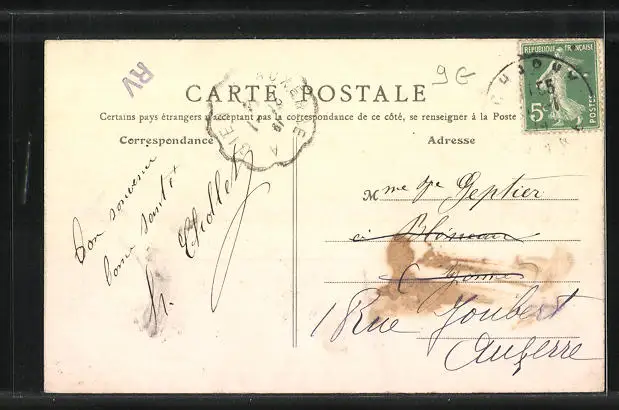 RV
9G
CARTE POSTALE
Certains pays étrangers n'acceptant pas la correspondance de ce côté, se renseigner à la Poste
RÉPUBLIQUE FRANÇAISE
5c
POSTES
Correspondance
Adresse
Bon souvenir
bonne santé
Mme Vve Septier
à Bléneau
Yonne
1 Rue Joubert
Auxerre